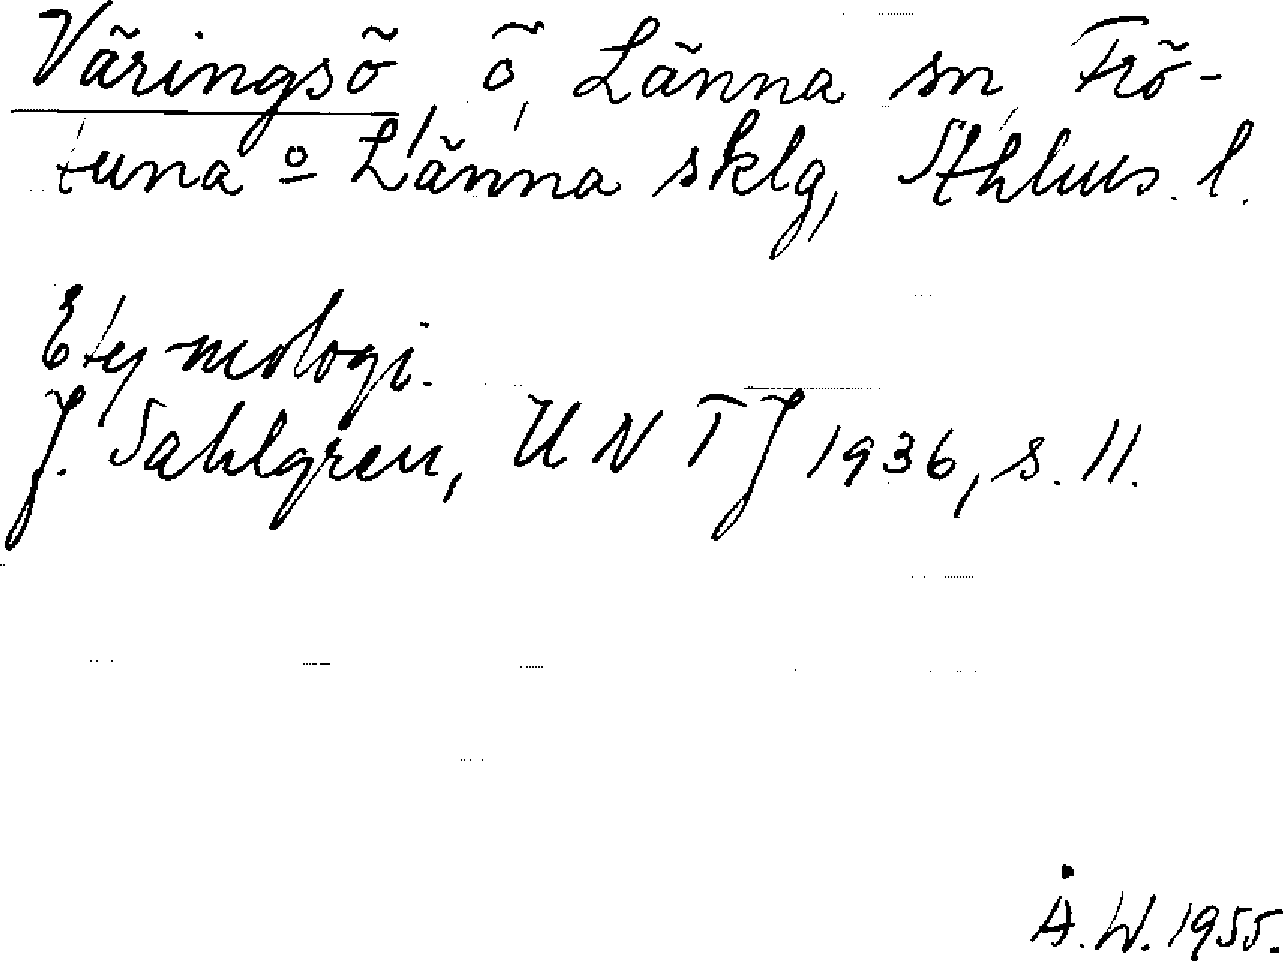 Väringsö, ö, Länna sn, Frö-
tuna o Länna sklg, Sthlms. l.
Etymologi.
J. Sahlgren, UNTJ 1936, s. 11.
Å.W. 1955.